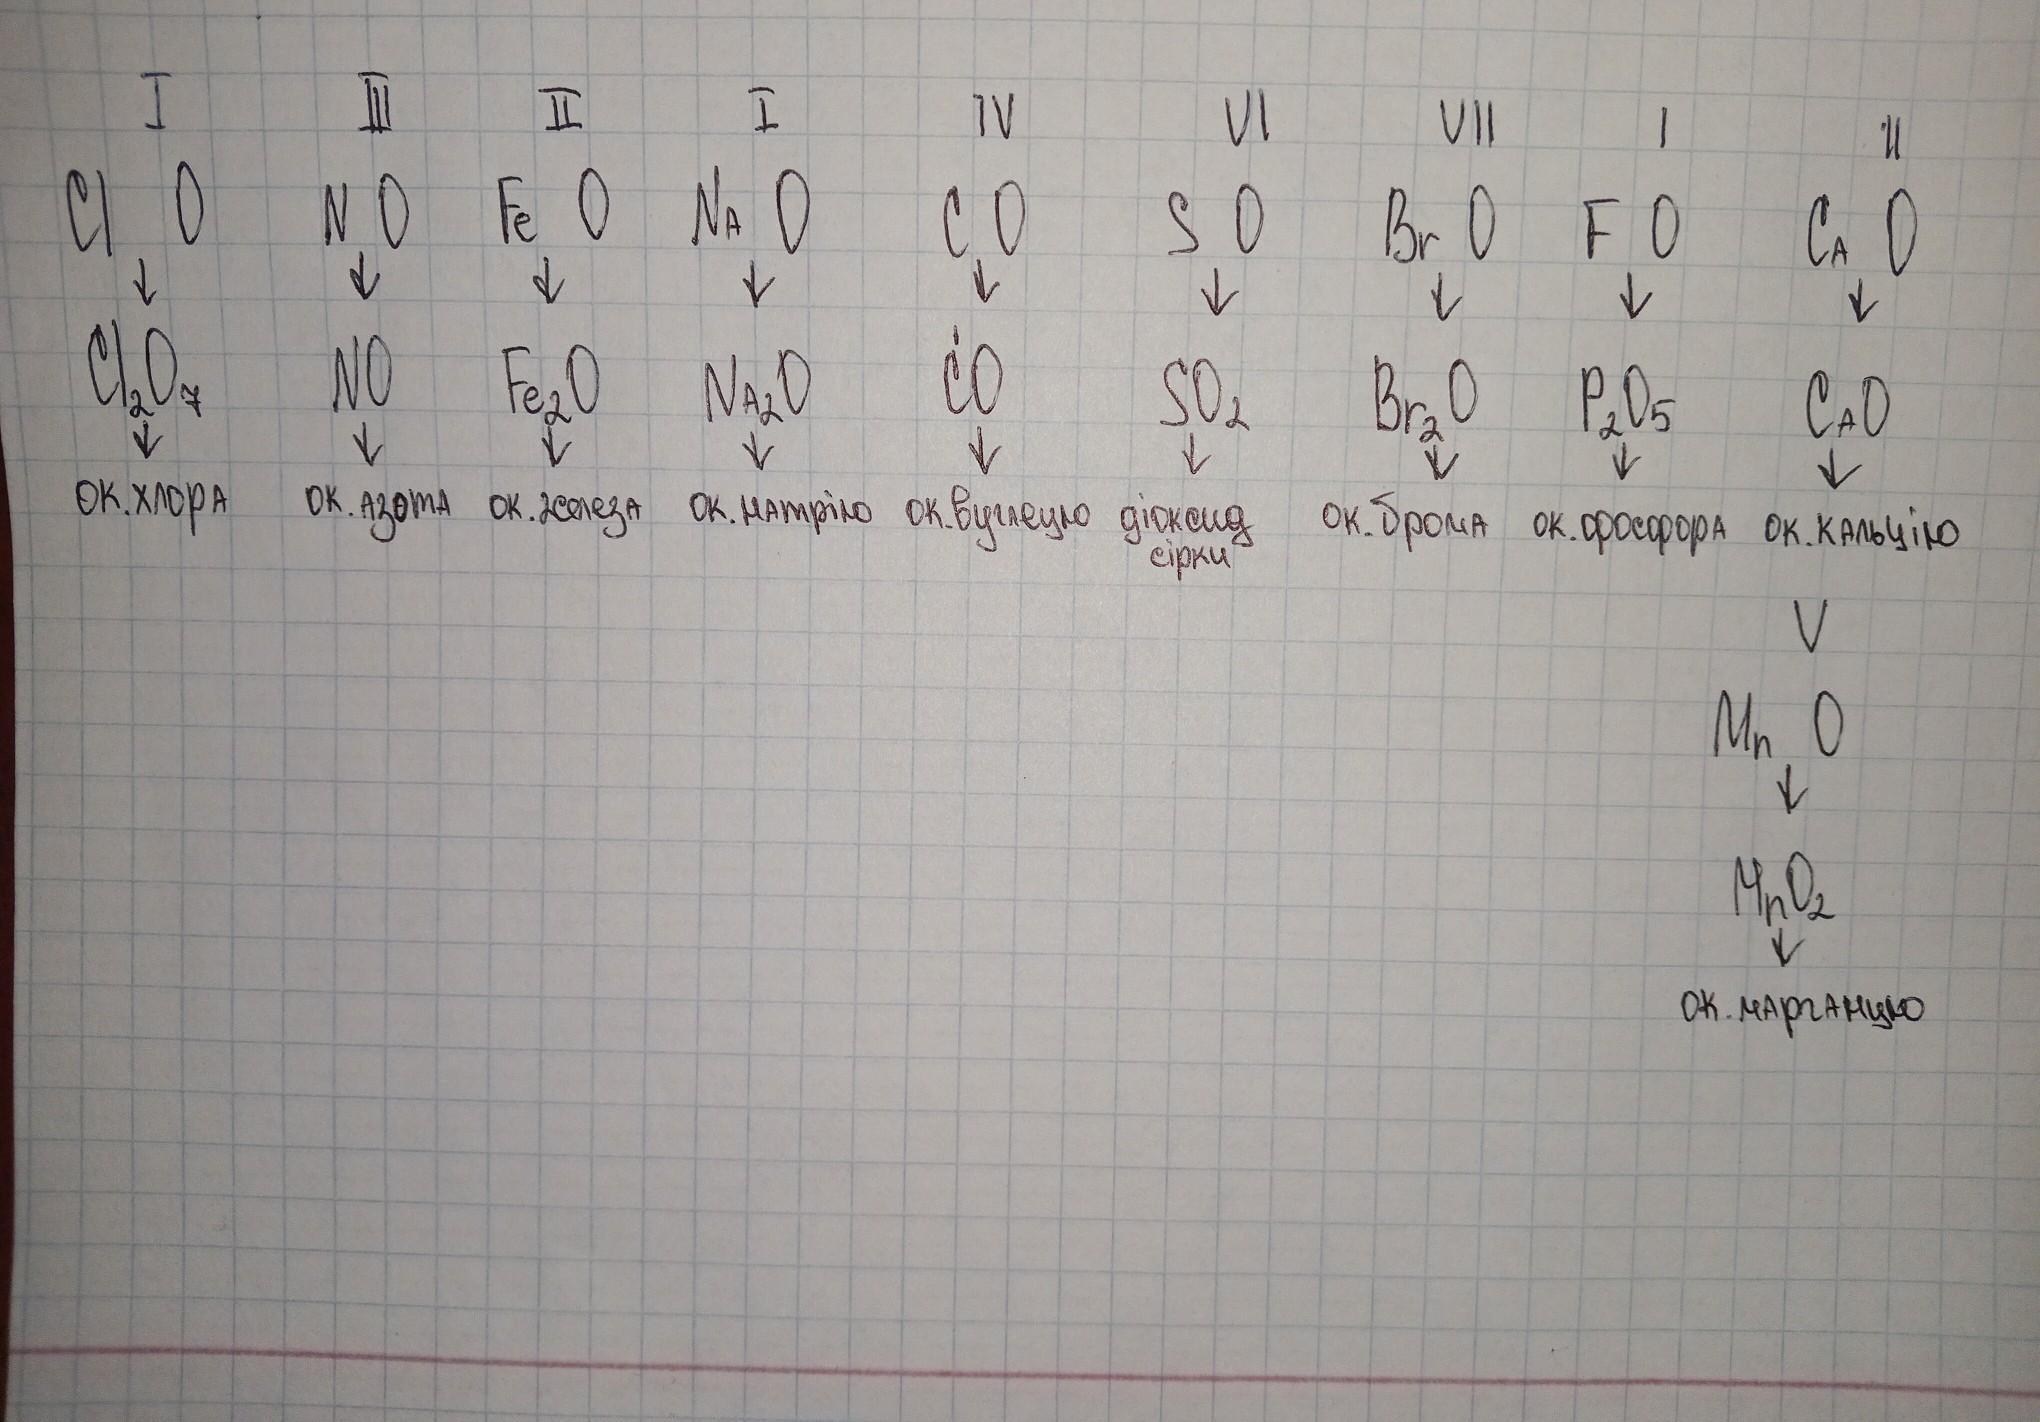 I III II I IV VI VII I II
Cl O N O Fe O Na O C O S O Br O F O Ca O
↓ ↓ ↓ ↓ ↓ ↓ ↓ ↓ ↓
Cl₂O₇ NO Fe₂O Na₂O CO SO₂ Br₂O P₂O₅ CaO
↓ ↓ ↓ ↓ ↓ ↓ ↓ ↓ ↓
ок. хлора ок. азота ок. железа ок. натрію ок. вуглецю діоксид ок. брома ок. фосфора ок. кальцію
сірки
V
Mn O
↓
MnO₂
↓
ок. марганцю